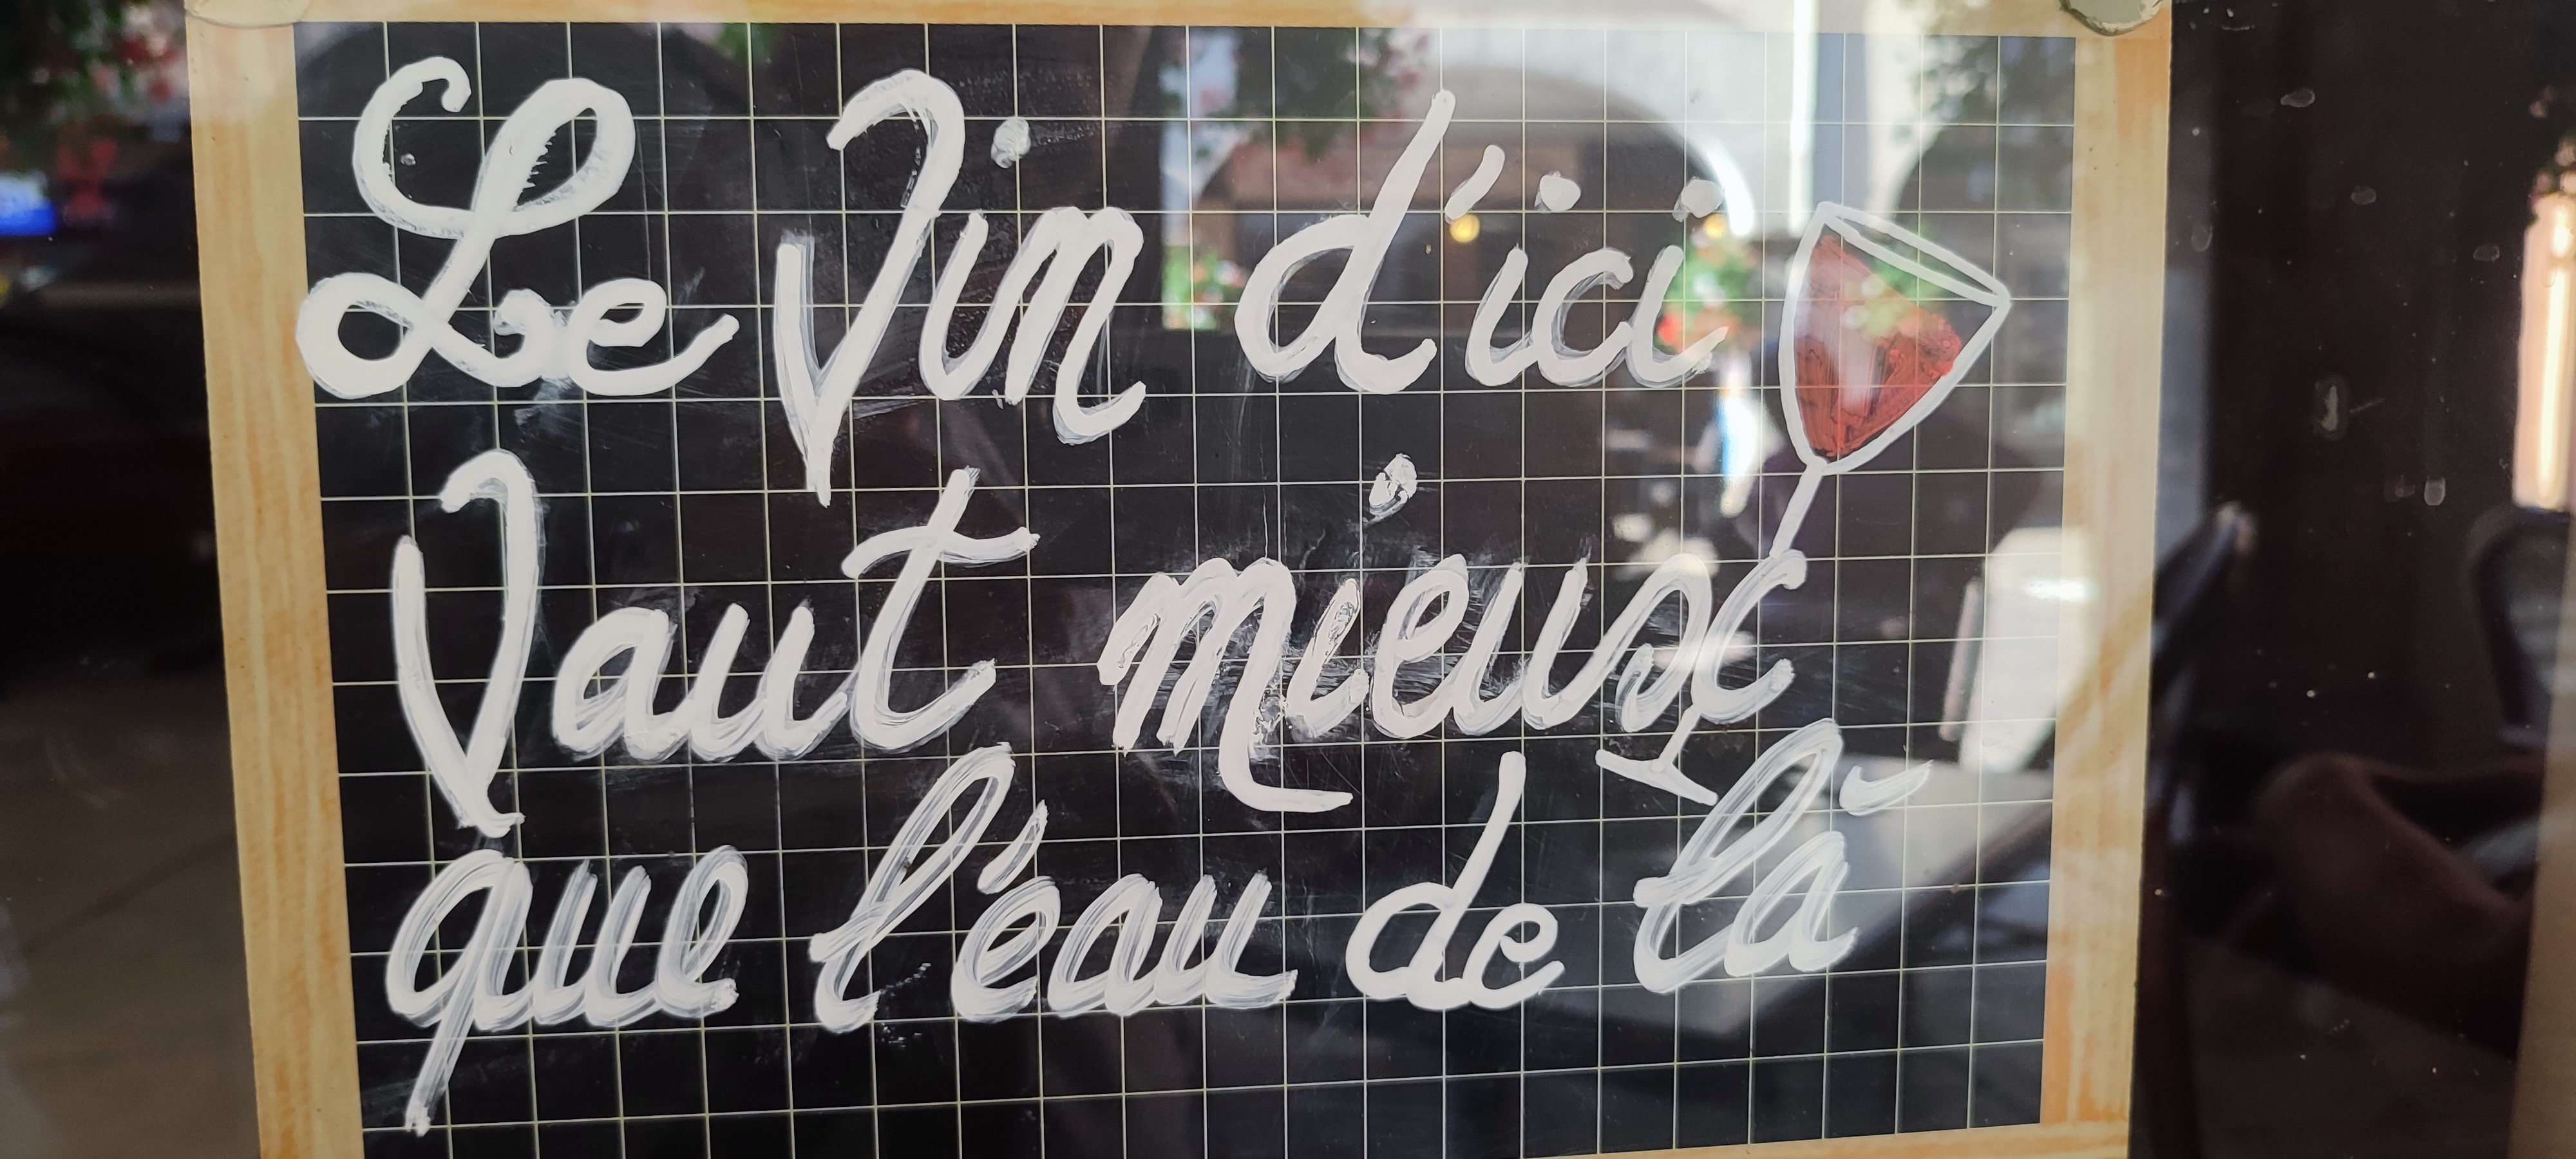 Le Vin d'ici
Vaut mieux
que l'eau de là